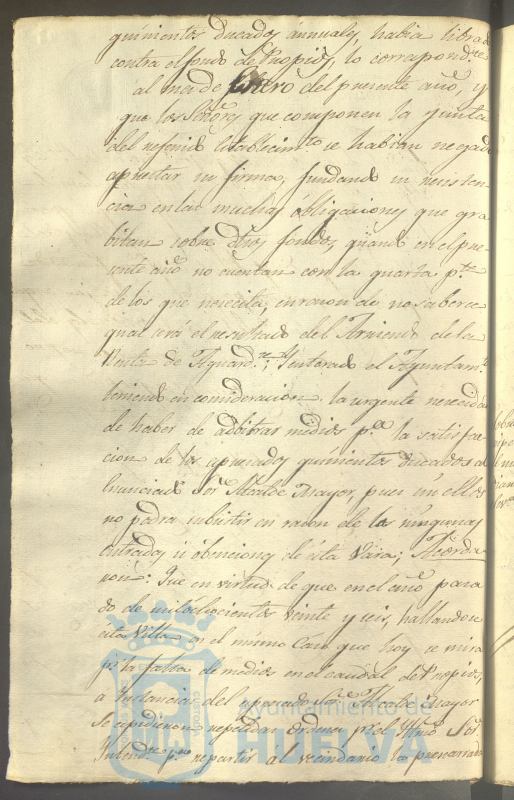 quinientos Ducados ánnuales, habia librado
contra el fondo de Propios, lo correspondte
al mes de Enero del presente año, y
que los Señores que componen la Junta
del referido Establecimto se habian negado
aprestar su firma, fundando su resisten
cia en las muchas óbligaciones que gra
bitan sobre dhos fondos, quando en el pre
sente año no cuentan con la quarta pte
de los que necesita, en razon de no saberse
qual será el resultado del Arriendo de la
Renta de Aguardte; Enterado el Ayuntamto
teniendo en consideracion la urgente necesidad
de haber de adbitrar medios pa la satisfa
cion de los expresados quinientos ducados al
enunciado Sor Alcalde Mayor, pues sin ellos
no podra subsistir en razon de las ningunas
entradas ú óbenciones de ésta Vara; Acorda
ron: Que en virtud de que en el año pasa
do de mil ochocientos veinte y seis, hallandose
esta Villa en el mismo Caso que hoy se mira
pr la falta de medios en el caudal de Propios,
a Instancias del expresado Sor Alcalde Mayor
se expidieron repetidas ordenes pr el Ylmo Sor
Intendte pa repartir al vecindario la
Ayuntamiento de
HUELVA